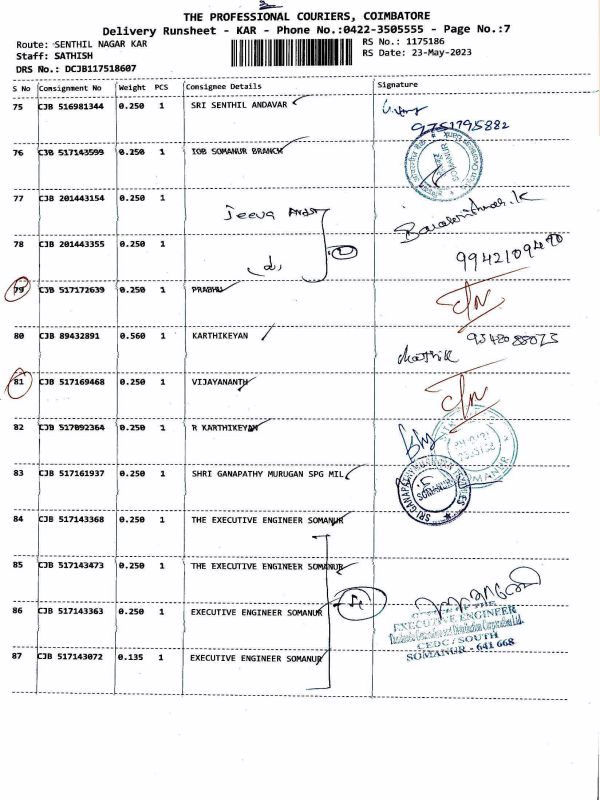 THE PROFESSIONAL COURIERS, COIMBATORE
Delivery Runsheet - KAR - Phone No.:0422-3505555 - Page No.:7
Route: SENTHIL NAGAR KAR
RS No.: 1175186
Staff: SATHISH
RS Date: 23-May-2023
DRS No.: DCJB117518607
S No Consignment No Weight PCS Consignee Details Signature
75 CJB 516981344 0.250 1 SRI SENTHIL ANDAVAR
9751795882
76 CJB 517143599 0.250 1 IOB SOMANUR BRANCH
77 CJB 201443154 0.250 1 Jeeva
78 CJB 201443355 0.250 1
79 CJB 517172639 0.250 1 PRABHU
80 CJB 89432891 0.560 1 KARTHIKEYAN
81 CJB 517169468 0.250 1 VIJAYANANTH
82 CJB 517092364 0.250 1 R KARTHIKEYAN
83 CJB 517161937 0.250 1 SHRI GANAPATHY MURUGAN SPG MIL
84 CJB 517143368 0.250 1 THE EXECUTIVE ENGINEER SOMANUR
85 CJB 517143473 0.250 1 THE EXECUTIVE ENGINEER SOMANUR
86 CJB 517143363 0.250 1 EXECUTIVE ENGINEER SOMANUR
EXECUTIVE ENGINEER
CEDC / SOUTH
SOMANUR - 641 668
87 CJB 517143072 0.135 1 EXECUTIVE ENGINEER SOMANUR